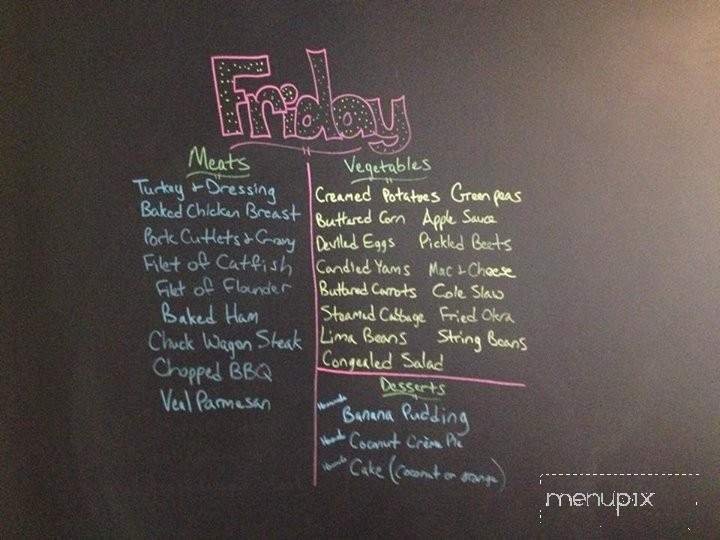 Friday
Meats
Turkey & Dressing
Baked Chicken Breast
Pork Cutlets & Gravy
Filet of Catfish
Filet of Flounder
Baked Ham
Chuck Wagon Steak
Chopped BBQ
Veal Parmesan
Vegetables
Creamed Potatoes Green peas
Buttered Corn Apple Sauce
Deviled Eggs Pickled Beets
Candied Yams Mac & Cheese
Buttered Carrots Cole Slaw
Steamed Cabbage Fried Okra
Lima Beans String Beans
Congealed Salad
Desserts
Homemade Banana Pudding
Homemade Coconut Crème Pie
Homemade Cake (coconut or orange)
menupix